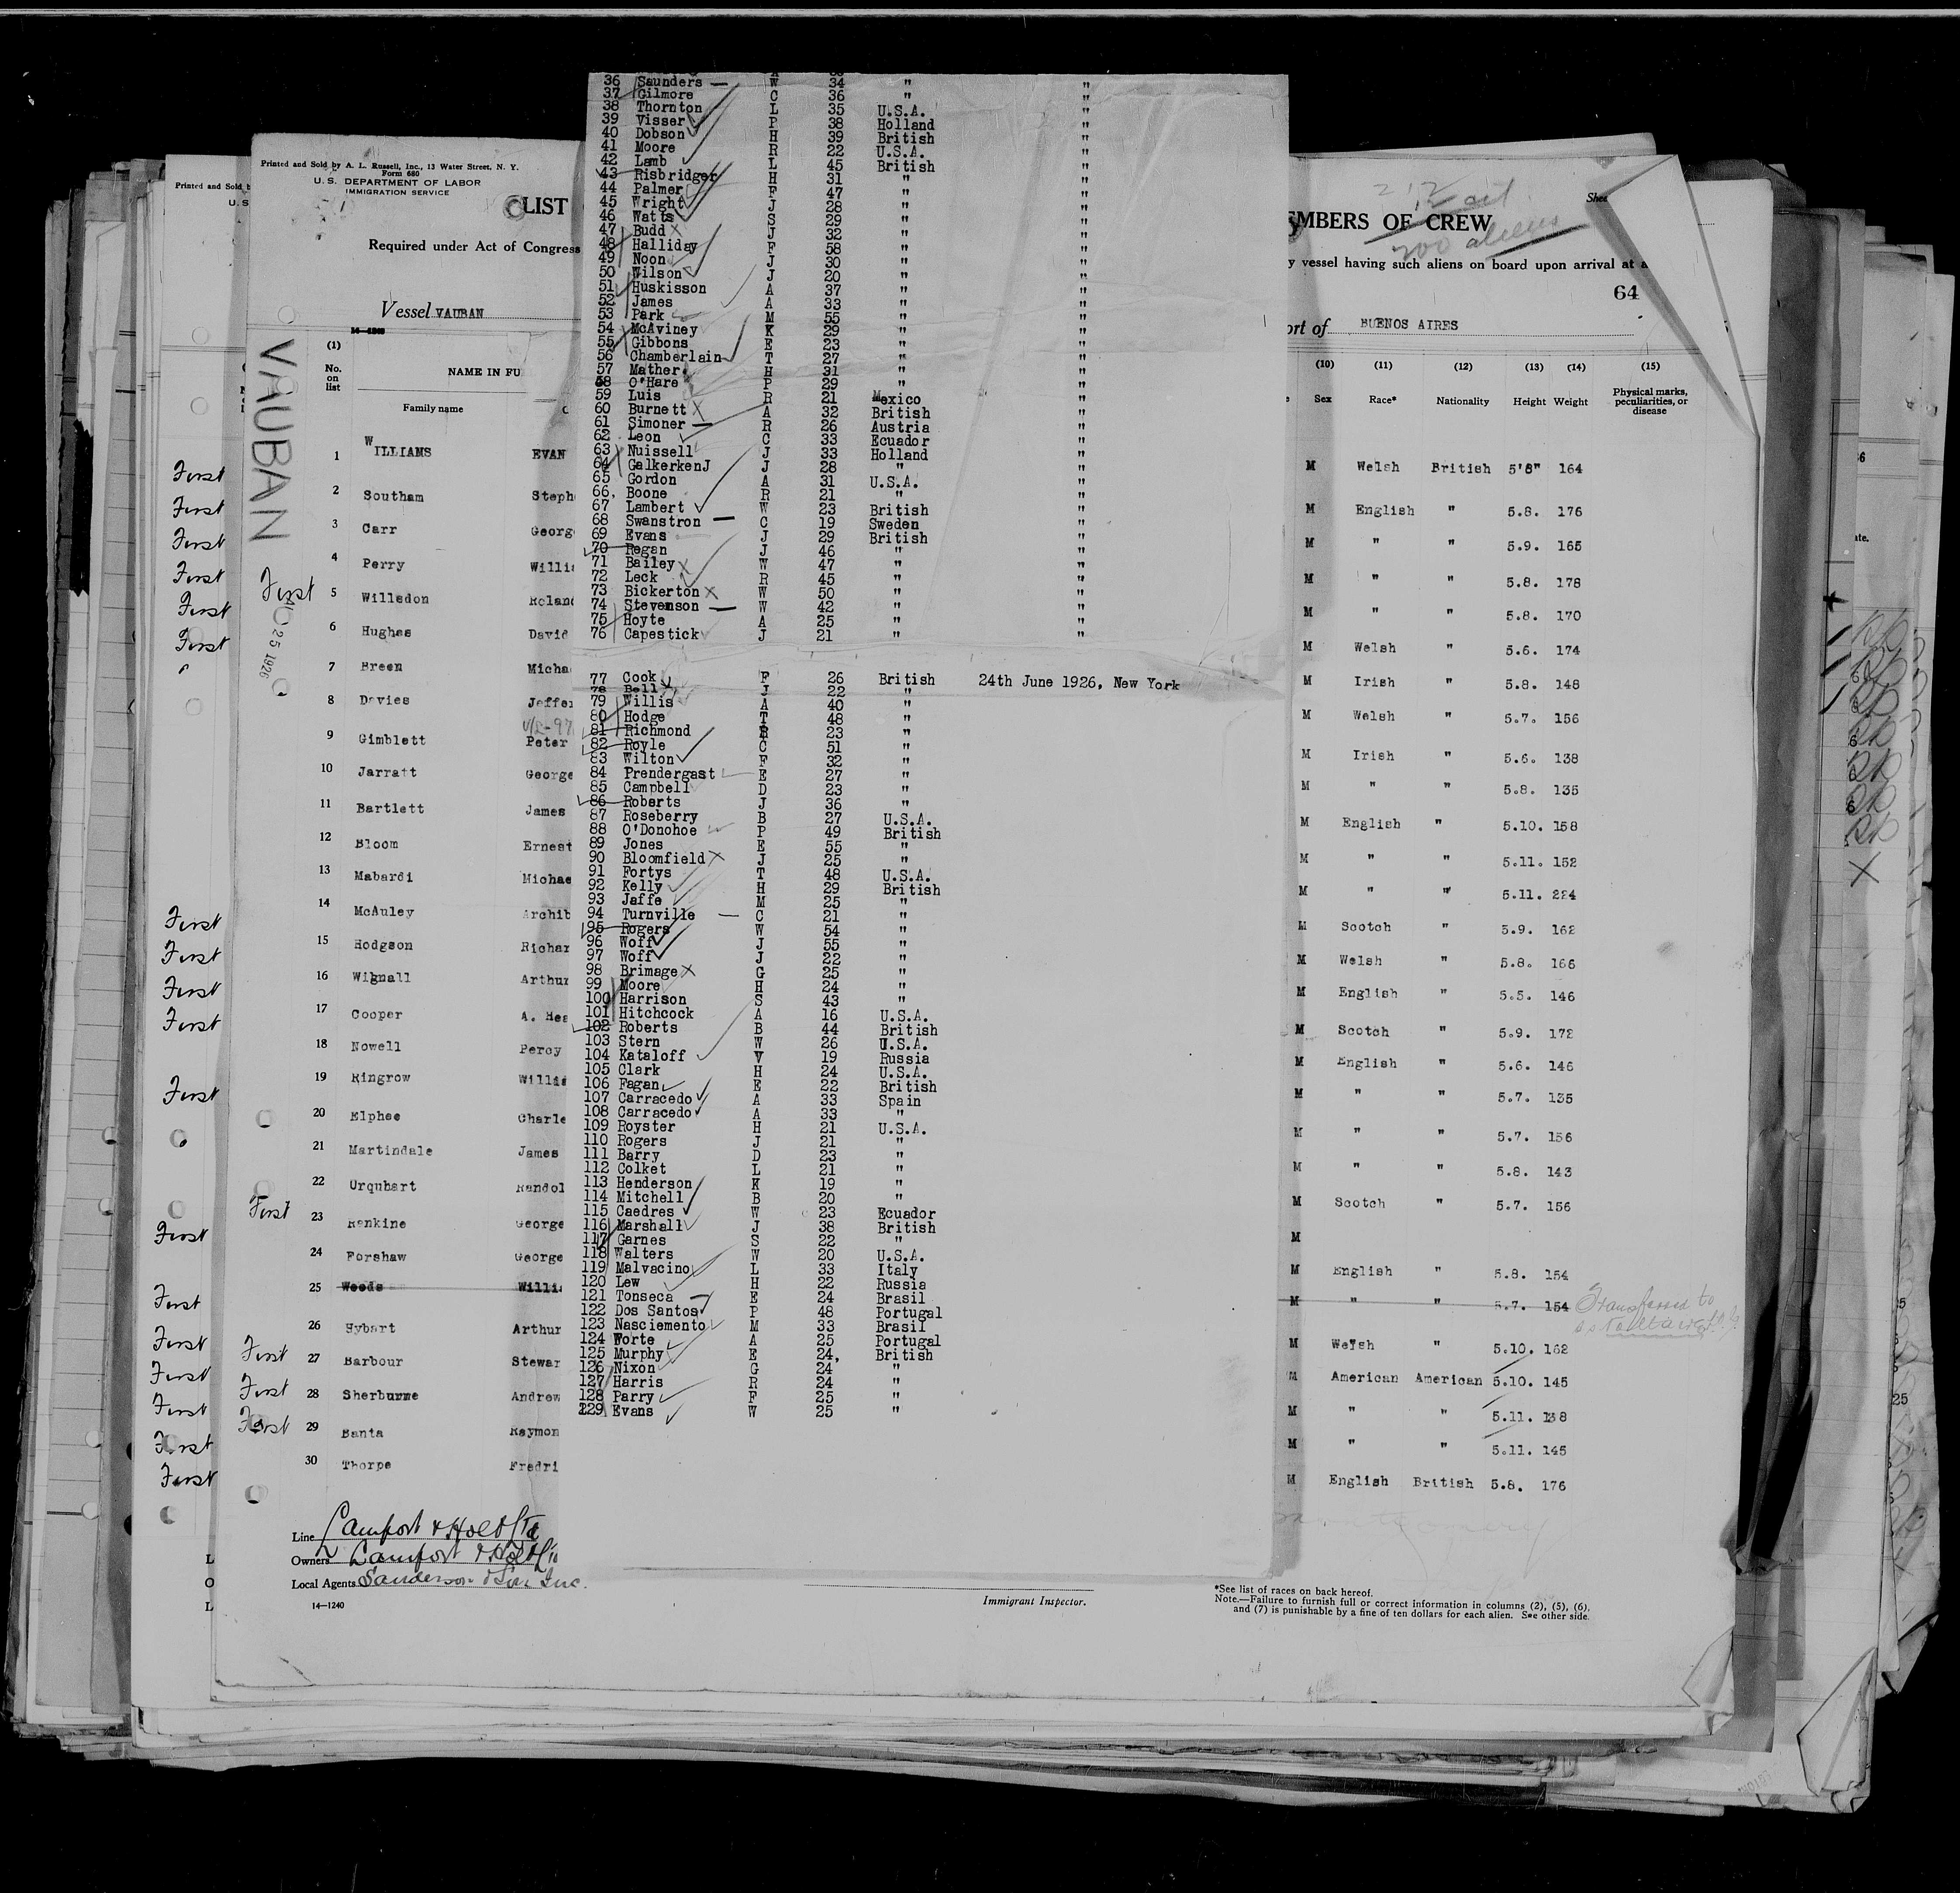 Printed and Sold by A. L. Russell, Inc., 13 Water Street, N. Y.
Form 680
U. S. DEPARTMENT OF LABOR
IMMIGRATION SERVICE
LIST
MBERS OF CREW
Required under Act of Congress
y vessel having such aliens on board upon arrival at a
64
Vessel VAUBAN
ort of BUENOS AIRES
VAUBAN
(1)
No. on list
NAME IN FU
Family name
(10) (11) (12) (13) (14) (15)
Sex Race* Nationality Height Weight Physical marks, peculiarities, or disease
1 WILLIAMS EVAN M Welsh British 5'8" 164
2 Southam Steph M English " 5.8. 176
3 Carr Georg M " " 5.9. 165
4 Perry Willi M " " 5.8. 178
5 Willsdon Roland M " " 5.8. 170
6 Hughes David M Welsh " 5.6. 174
7 Breen Micha M Irish " 5.8. 148
8 Davies Jeffer M Welsh " 5.7. 156
9 Gimblett Peter M Irish " 5.6. 138
10 Jarratt George M " " 5.8. 135
11 Bartlett James M English " 5.10. 158
12 Bloom Ernest M " " 5.11. 152
13 Mabardi Michae M " " 5.11. 224
14 McAuley Archib M Scotch " 5.9. 162
15 Hodgson Richar M Welsh " 5.8. 166
16 Wignall Arthur M English " 5.5. 146
17 Cooper A. Hea M Scotch " 5.9. 172
18 Nowell Percy M English " 5.6. 146
19 Ringrow Willia M " " 5.7. 135
20 Elphee Charle M " " 5.7. 156
21 Martindale James M " " 5.8. 143
22 Urquhart Randol M Scotch " 5.7. 156
23 Renkine George M
24 Forshaw George M English " 5.8. 154
25 Woods Willi M " " 5.7. 154 Transferred to
26 Hybart Arthur M Welsh " 5.10. 162
27 Barbour Stewar M American American 5.10. 145
28 Sherburne Andrew M " " 5.11. 138
29 Banta Raymon M " " 5.11. 145
30 Thorpe Fredri M English British 5.8. 176
36 Saunders W 34 " "
37 Gilmore C 36 " "
38 Thornton L 35 U.S.A. "
39 Visser P 38 Holland "
40 Dobson H 39 British "
41 Moore R 22 U.S.A. "
42 Lamb L 45 British "
43 Risbridger H 31 " "
44 Palmer F 47 " "
45 Wright J 28 " "
46 Watts S 29 " "
47 Budd J 32 " "
48 Halliday F 58 " "
49 Noon J 30 " "
50 Wilson J 20 " "
51 Huskisson A 37 " "
52 James A 33 " "
53 Park M 55 " "
54 McAviney K 29 " "
55 Gibbons E 23 " "
56 Chamberlain T 27 " "
57 Mather H 31 " "
58 O'Hare P 29 " "
59 Luis R 21 Mexico "
60 Burnett A 32 British "
61 Simoner R 26 Austria "
62 Leon C 33 Ecuador "
63 Nuissell J 33 Holland "
64 GalkerkenJ J 28 " "
65 Gordon A 31 U.S.A. "
66 Boone R 21 " "
67 Lambert W 23 British "
68 Swanstron C 19 Sweden "
69 Evans J 29 British "
70 Regan J 46 " "
71 Bailey W 47 " "
72 Leck R 45 " "
73 Bickerton W 50 " "
74 Stevenson W 42 " "
75 Hoyte A 25 " "
76 Capestick J 21 " "
77 Cook F 26 British 24th June 1926, New York
78 Bell J 22 "
79 Willis A 40 "
80 Hodge T 48 "
81 Richmond R 23 "
82 Royle C 51 "
83 Wilton F 32 "
84 Prendergast E 27 "
85 Campbell D 23 "
86 Roberts J 36 "
87 Roseberry B 27 U.S.A.
88 O'Donohoe P 49 British
89 Jones E 55 "
90 Bloomfield J 25 "
91 Fortys T 48 U.S.A.
92 Kelly H 29 British
93 Jaffe M 25 "
94 Turnville C 21 "
95 Rogers W 54 "
96 Woff J 55 "
97 Woff J 22 "
98 Brimage G 25 "
99 Moore H 24 "
100 Harrison S 43 "
101 Hitchcock A 16 U.S.A.
102 Roberts B 44 British
103 Stern W 26 U.S.A.
104 Kataloff V 19 Russia
105 Clark H 24 U.S.A.
106 Fagan E 22 British
107 Carracedo A 33 Spain
108 Carracedo A 33 "
109 Royster H 21 U.S.A.
110 Rogers J 21 "
111 Barry D 23 "
112 Colket L 21 "
113 Henderson K 19 "
114 Mitchell B 20 "
115 Caedres W 23 Ecuador
116 Marshall J 38 British
117 Garnes S 22 "
118 Walters W 20 U.S.A.
119 Malvacino L 33 Italy
120 Lew H 22 Russia
121 Tonseca E 24 Brasil
122 Dos Santos P 48 Portugal
123 Nasciemento M 33 Brasil
124 Worte A 25 Portugal
125 Murphy E 24, British
126 Nixon G 24 "
127 Harris R 24 "
128 Parry F 25 "
129 Evans W 25 "
Line Lamport & Holt Ltd
Owners Lamport & Holt
Local Agents Sanderson & Son Inc.
14—1240
Immigrant Inspector.
*See list of races on back hereof.
Note.—Failure to furnish full or correct information in columns (2), (5), (6), and (7) is punishable by a fine of ten dollars for each alien. See other side.